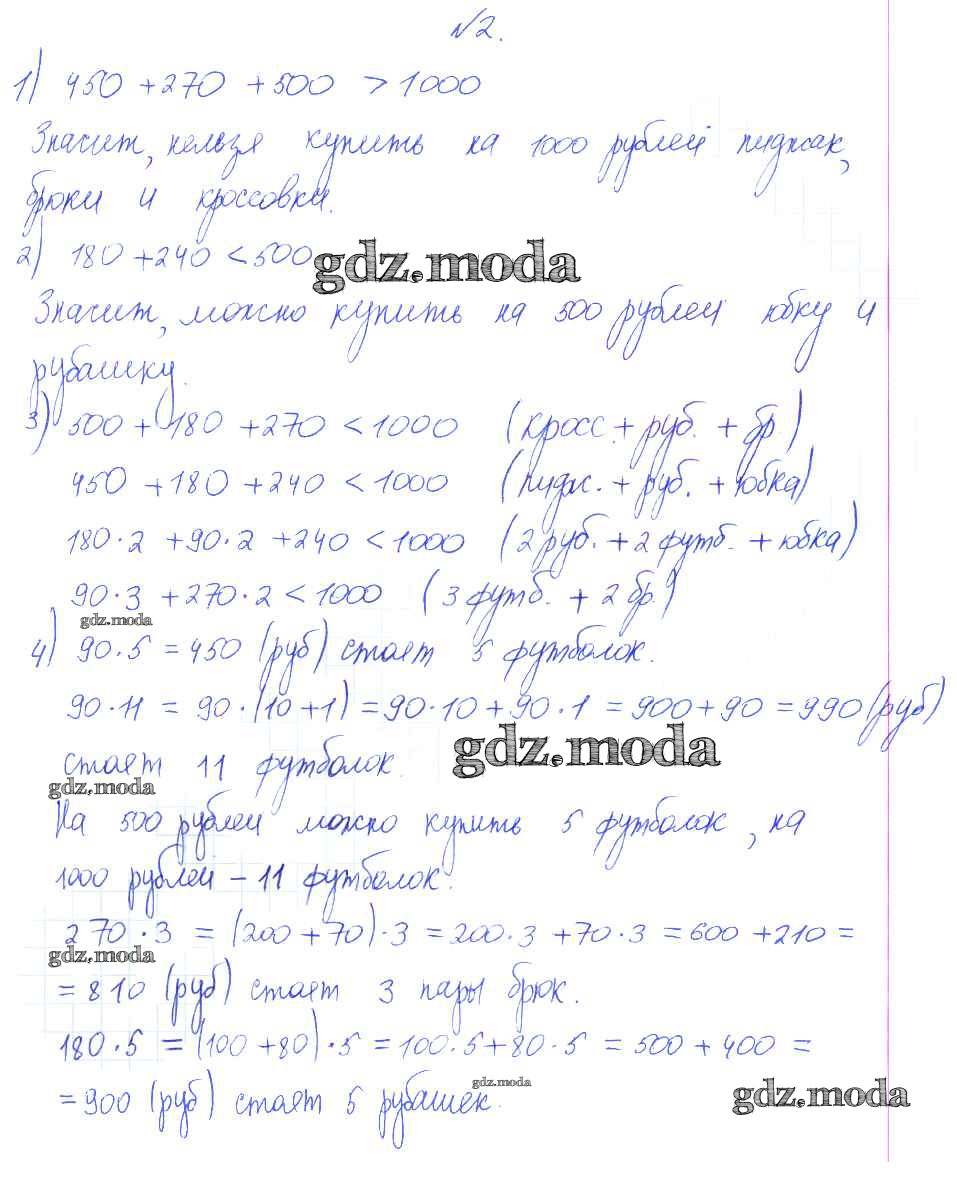 №2.
1) 450 + 270 + 500 > 1000
Значит, нельзя купить на 1000 рублей пиджак,
брюки и кроссовки.
2) 180 + 240 < 500
gdz.moda
Значит, можно купить на 500 рублей юбку и
рубашку.
3) 500 + 180 + 270 < 1000 (кросс. + руб. + бр.)
450 + 180 + 240 < 1000 (пидж. + руб. + юбка)
180·2 + 90·2 + 240 < 1000 (2 руб. + 2 футб. + юбка)
90·3 + 270·2 < 1000 (3 футб. + 2 бр.)
gdz.moda
4) 90·5 = 450 (руб) стоят 5 футболок.
90·11 = 90·(10+1) = 90·10 + 90·1 = 900 + 90 = 990 (руб)
gdz.moda
стоят 11 футболок.
gdz.moda
На 500 рублей можно купить 5 футболок, на
1000 рублей – 11 футболок.
270·3 = (200 + 70)·3 = 200·3 + 70·3 = 600 + 210 =
gdz.moda
= 810 (руб) стоят 3 пары брюк.
180·5 = (100 + 80)·5 = 100·5 + 80·5 = 500 + 400 =
gdz.moda
= 900 (руб) стоят 5 рубашек.
gdz.moda